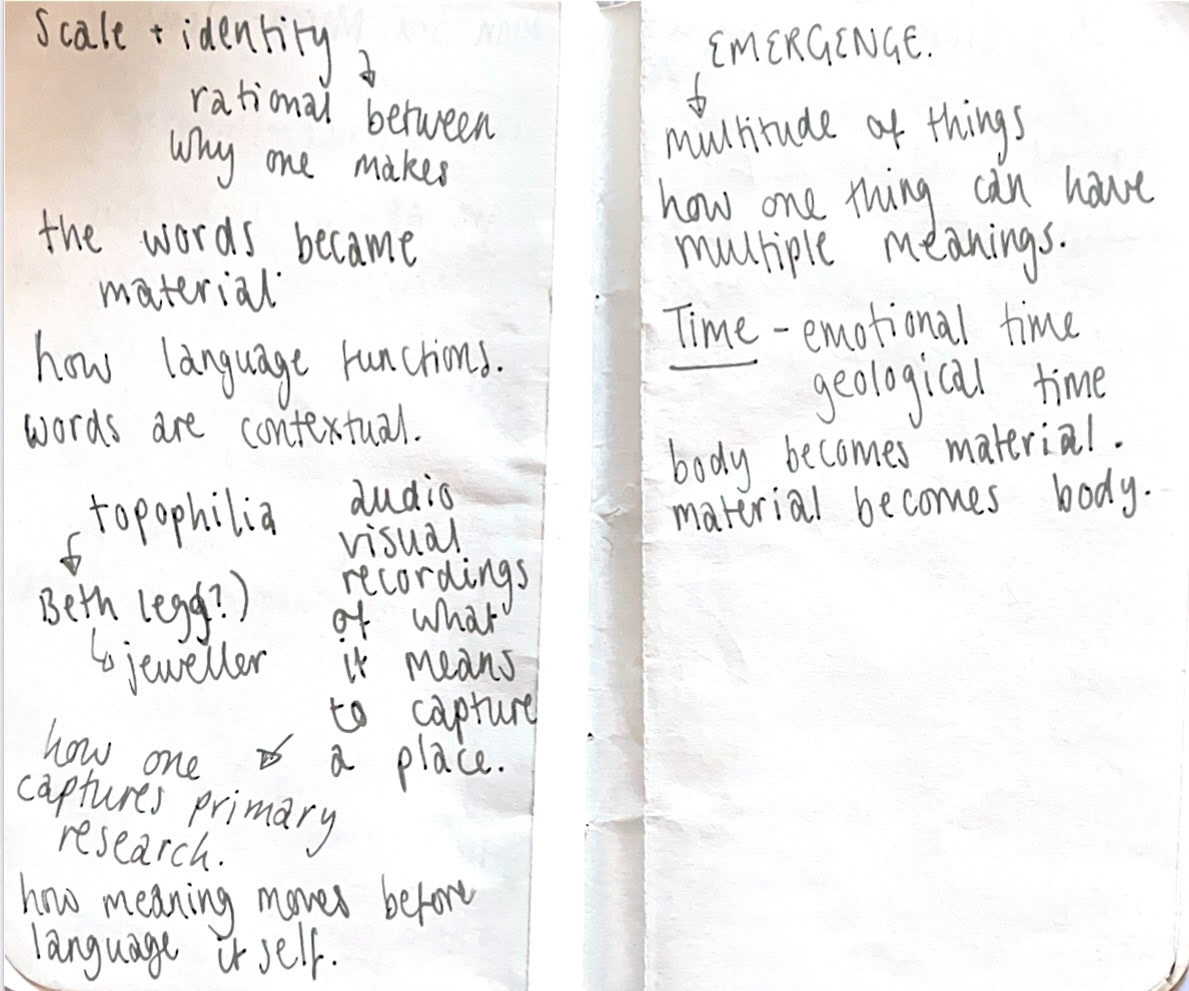 Scale + identity
↓
rational between
why one makes
the words became
material
how language functions.
words are contextual.
topophilia
↓
Beth legg?)
↳ jeweller
audio
visual
recordings
of what
it means
to capture
a place.
↙
how one
captures primary
research.
how meaning moves before
language itself.
EMERGENGE.
↓
multitude of things
how one thing can have
multiple meanings.
Time - emotional time
geological time
body becomes material.
material becomes body.